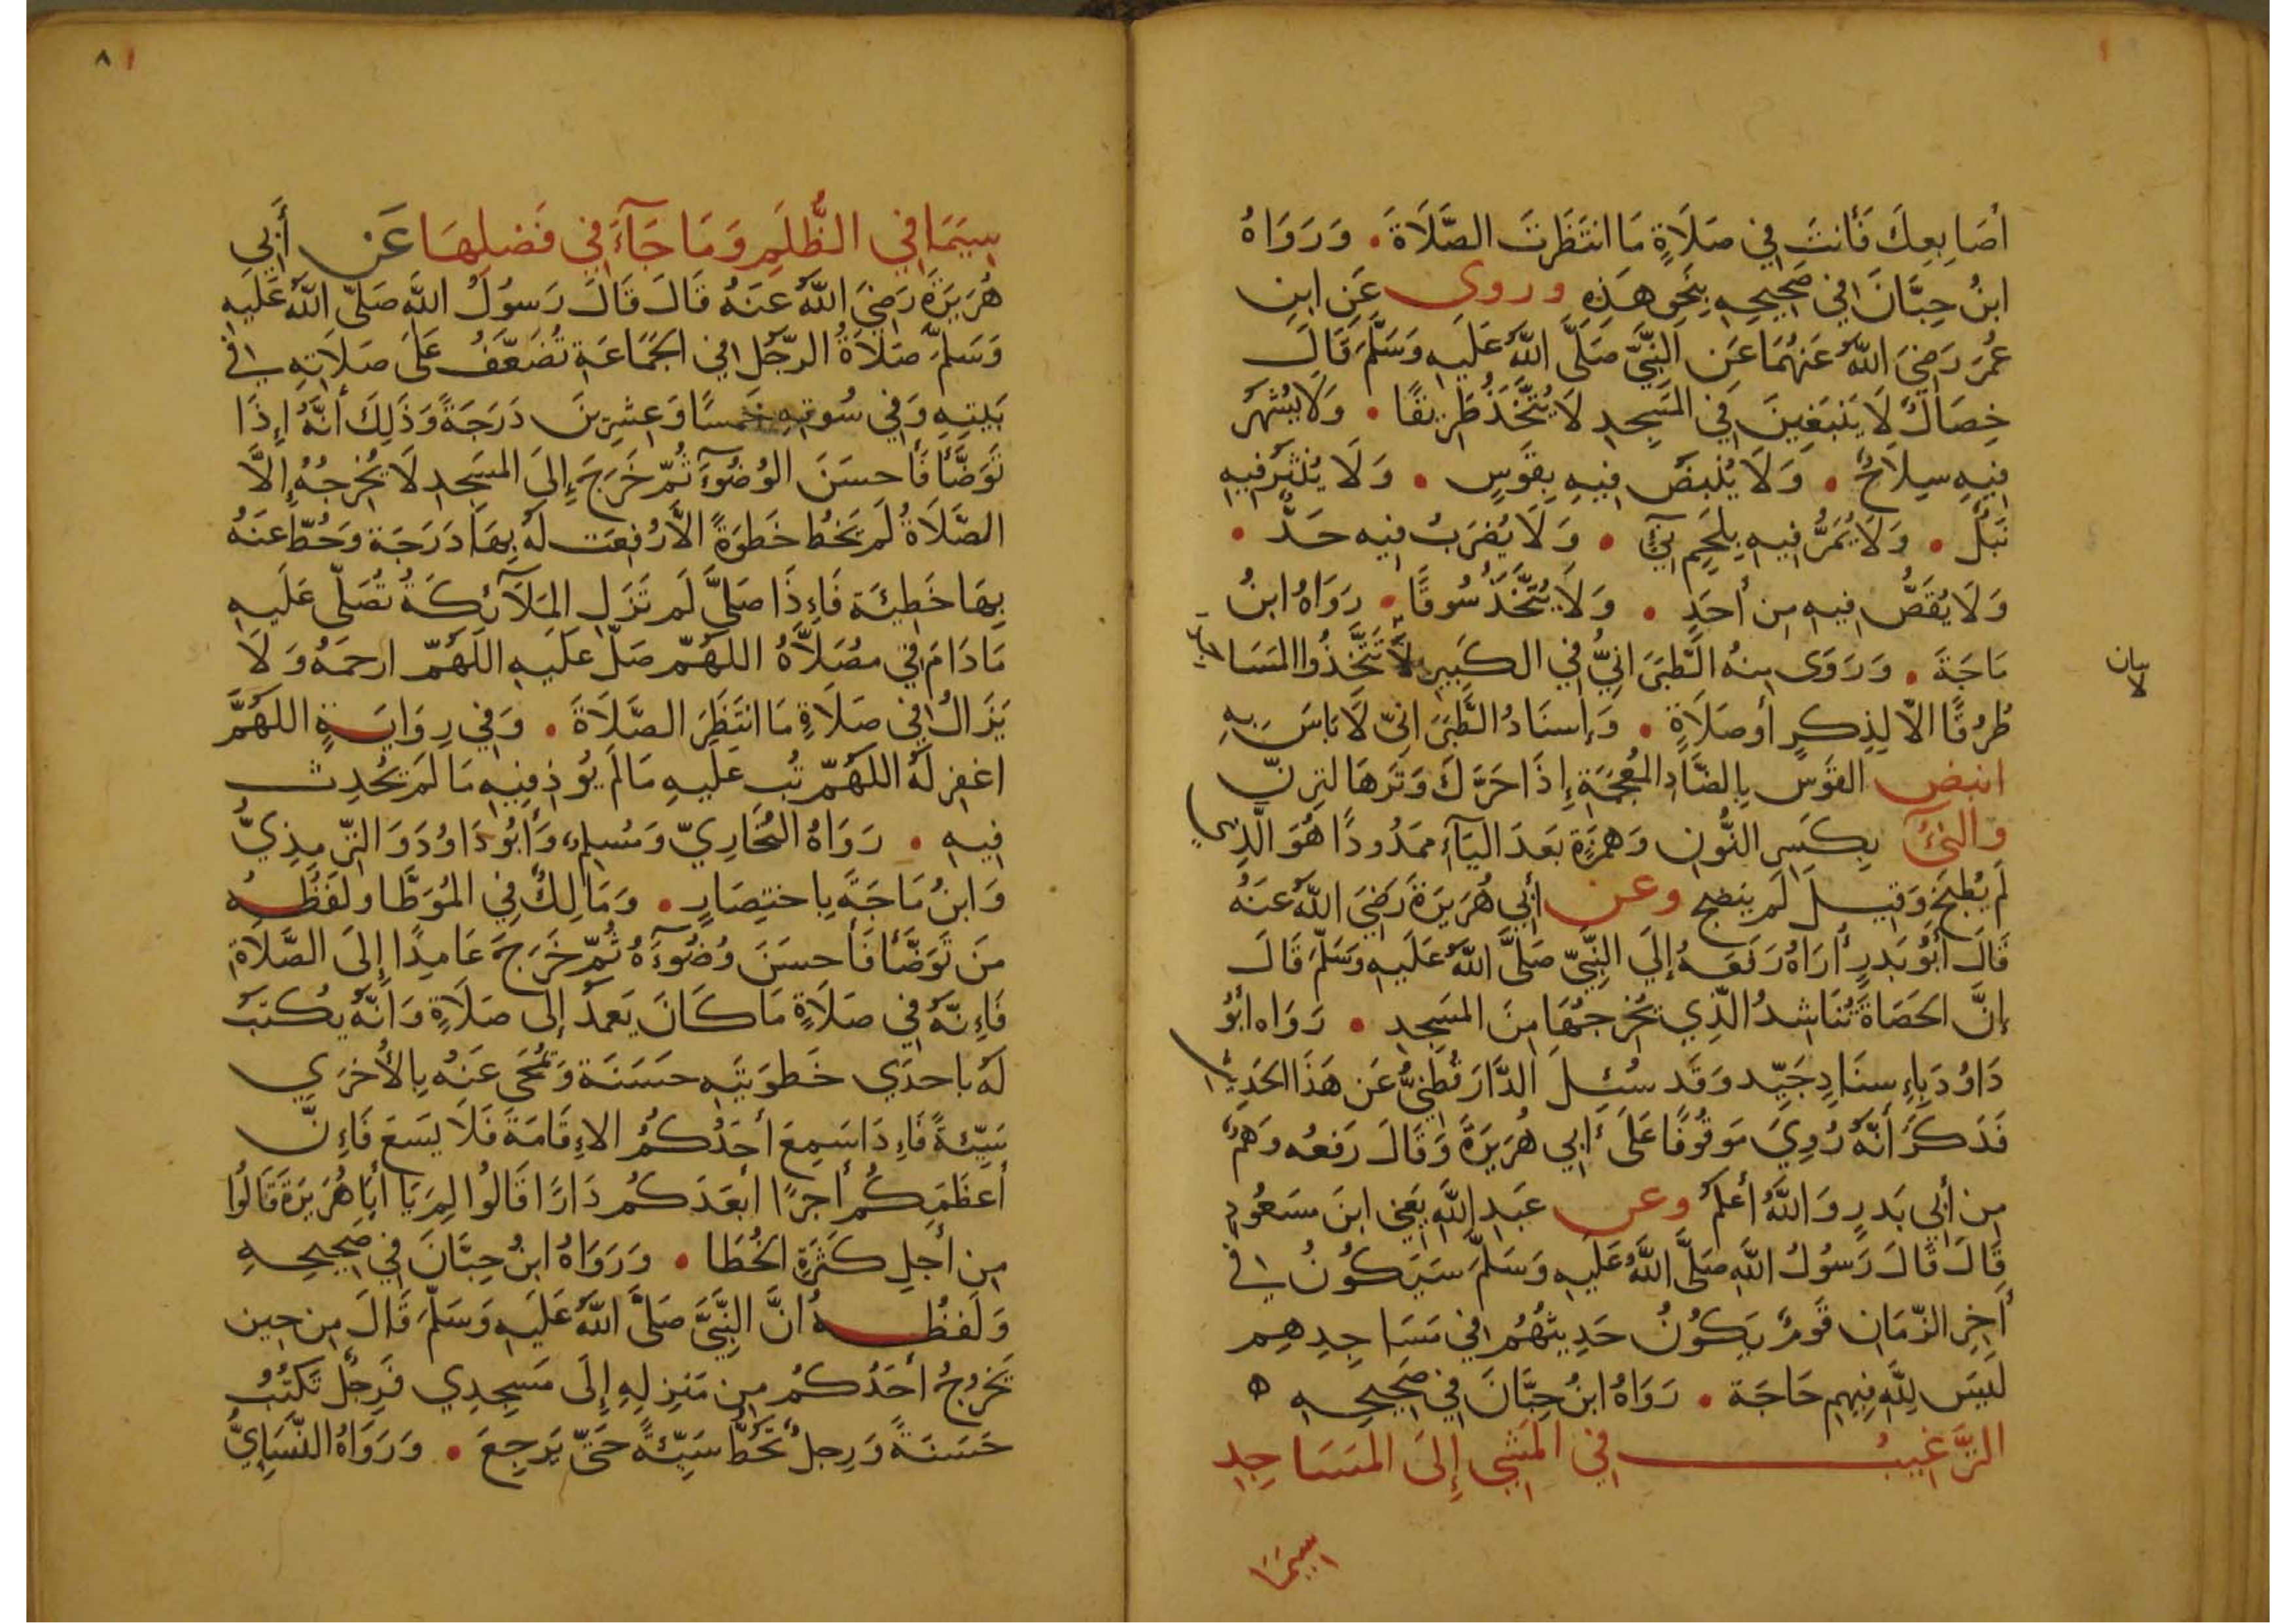 أصَابِعِكَ فَأَنتَ فِي صَلَاةٍ مَا انتَظَرتَ الصَّلَاةَ • وَرَوَاهُ
ابنُ حِبَّانَ فِي صَحِيحِهِ بِنَحوِ هَذِهِ وروى عَنِ ابنِ
عُمَرَ رَضِيَ اللَّهُ عَنهُمَا عَنِ النَّبِيِّ صَلَّى اللَّهُ عَلَيهِ وَسَلَّمَ قَالَ
خِصَالٌ لَا يَنبَغِينَ فِي المَسجِدِ لَا يُتَّخَذُ طَرِيقًا • وَلَا يُشهَرُ
فِيهِ سِلَاحٌ • وَلَا يُنبَضُ فِيهِ بِقَوسٍ • وَلَا يُنثَرُ فِيهِ
نَبلٌ • وَلَا يُمَرُّ فِيهِ بِلَحمٍ نِيّ • وَلَا يُضرَبُ فِيهِ حَدٌّ •
وَلَا يُقَصُّ فِيهِ مِن أَحَدٍ • وَلَا يُتَّخَذُ سُوقًا • رَوَاهُ ابنُ
مَاجَةَ • وَرَوَى مِنهُ الطَّبَرَانِيُّ فِي الكَبِيرِ لَا تَتَّخِذُوا المَسَاجِدَ
بيان
لا
طُرُقًا الّا لِذِكرٍ أَو صَلَاةٍ • وَإِسنَادُ الطَّبَرَانِيّ لَا بَاسَ بِهِ
انبض القَوس بِالضَّادِ المُعجَمَةِ إِذَا حَرَّكَ وَتَرَهَا لتِرِنّ
والنئ بِكَسرِ النُّونِ وَهَمزَةٍ بَعدَ اليَآءِ مَمدُودًا هُوَ الَّذِي
لَم يُطبَخ وَقِيلَ لَم ينضج وعن أَبِي هُرَيرَةَ رَضِيَ اللَّهُ عَنهُ
قَالَ أَبُو بَدرٍ أُرَاهُ رَفَعَهُ إِلَى النَّبِيِّ صَلَّى اللَّهُ عَلَيهِ وَسَلَّمَ قَالَ
إِنَّ الحَصَاةَ تُنَاشِدُ الَّذِي يُخرِجُهَا مِنَ المَسجِدِ • رَوَاه أَبُو
دَاوُدَ بِإِسنَادٍ جَيِّد وَقَد سُئِلَ الدَّارَقُطنِيُّ عَن هَذَا الحَدِيثِ
فَذَكَرَ أَنَّهُ رُوِيَ مَوقُوفًا عَلَى أَبِي هُرَيرَةَ وَقَالَ رَفعُه وَهمٌ
مِن أَبِي بَدرٍ وَاللَّهُ أَعلَمُ وعن عَبدِ اللَّهِ يَعنِي ابنَ مَسعُودٍ
قَالَ قَالَ رَسُولُ اللَّهِ صَلَّى اللَّهُ عَلَيهِ وَسَلَّمَ سَيَكُونُ فِي
أَخِرِ الزَّمَانِ قَومٌ يَكُونُ حَدِيثُهُم فِي مَسَاجِدِهِم
لَيسَ لِلَّهِ فِيهِم حَاجَة • رَوَاهُ ابنُ حِبَّانَ فِي صَحِيحِهِ ه
التَّرغِيبُ فِي المَشيِ إِلَى المَسَاجِدِ
سيما
١٨
سِيَمَا فِي الظُّلَمِ وَمَا جَآءَ فِي فَضلِهَا عَن أَبِي
هُرَيرَةَ رَضِيَ اللَّهُ عَنهُ قَالَ قَالَ رَسُولُ اللَّهِ صَلَّى اللَّهُ عَلَيهِ
وَسَلَّمَ صَلَاةُ الرَّجُلِ فِي الجَمَاعَةِ تُضَعَّفُ عَلَى صَلَاتِهِ فِي
بَيتِهِ وَفِي سُوقِهِ خَمسًا وَعِشرِينَ دَرَجَةً وَذَلِكَ أَنَّهُ إِذَا
تَوَضَّأَ فَأَحسَنَ الوُضُوءَ ثُمَّ خَرَجَ إِلَى المَسجِدِ لَا يُخرِجُهُ إِلَّا
الصَّلَاةُ لَم يَخطُ خَطوَةً الَّا رُفِعَت لَهُ بِهَا دَرَجَة وَحُطَّ عَنهُ
بِهَا خَطِيئَة فَإِذَا صَلَّى لَم تَزَلِ المَلَآئِكَةُ تُصَلِّي عَلَيهِ
مَا دَامَ فِي مُصَلَّاهُ اللَّهُمَّ صَلِّ عَلَيهِ اللَّهُمَّ ارحَمهُ وَلَا
يَزَالُ فِي صَلَاةٍ مَا انتَظَرَ الصَّلَاةَ • وَفِي رِوَايَةٍ اللَّهُمَّ
اغفِر لَهُ اللَّهُمَّ تُب عَلَيهِ مَا لَم يُوذِ فِيهِ مَا لَم يُحدِث
فِيهِ • رَوَاهُ البُخَارِيّ وَمُسلِم وَأَبُو دَاوُدَ وَالتِّرمِذِيُّ
وَابنُ مَاجَةَ بِاختِصَارٍ • وَمَالِكٌ فِي المُوَطَّا ولَفظُهُ
مَن تَوَضَّأَ فَأَحسَنَ وُضُوءَهُ ثُمَّ خَرَجَ عَامِدًا إِلَى الصَّلَاةِ
فَإِنَّهُ فِي صَلَاةٍ مَا كَانَ يَعمِدُ إِلَى صَلَاةٍ وَأَنَّهُ يُكتَبُ
لَهُ بِاحدَي خَطوَتَيهِ حَسَنَة وَتُمحَى عَنهُ بِالأُخرَي
سَيِّئَةً فَإِذَا سَمِعَ أَحَدُكُمُ الإِقَامَةَ فَلَا يَسعَ فَإِنَّ
أَعظَمَكُم أَجرًا أَبعَدَكُم دَارًا قَالُوا لِمَ يَا أَبَا هُرَيرَةَ قَالُوا
مِن أَجلِ كَثرَةِ الخُطَا • وَرَوَاهُ ابنُ حِبَّانَ فِي صَحِيحِهِ
وَلَفظُهُ انَّ النَّبِيَّ صَلَّى اللَّهُ عَلَيهِ وَسَلَّمَ قَالَ مِن حِين
يَخرُجُ أَحَدُكُم مِن مَنزِلِهِ إِلَى مَسجِدِي فَرِجلٌ تَكتُبُ
حَسَنَةً وَرِجلٌ تَحُطُّ سَيِّئَةً حَتَّى يَرجِعَ • وَرَوَاهُ النَّسَايُّ